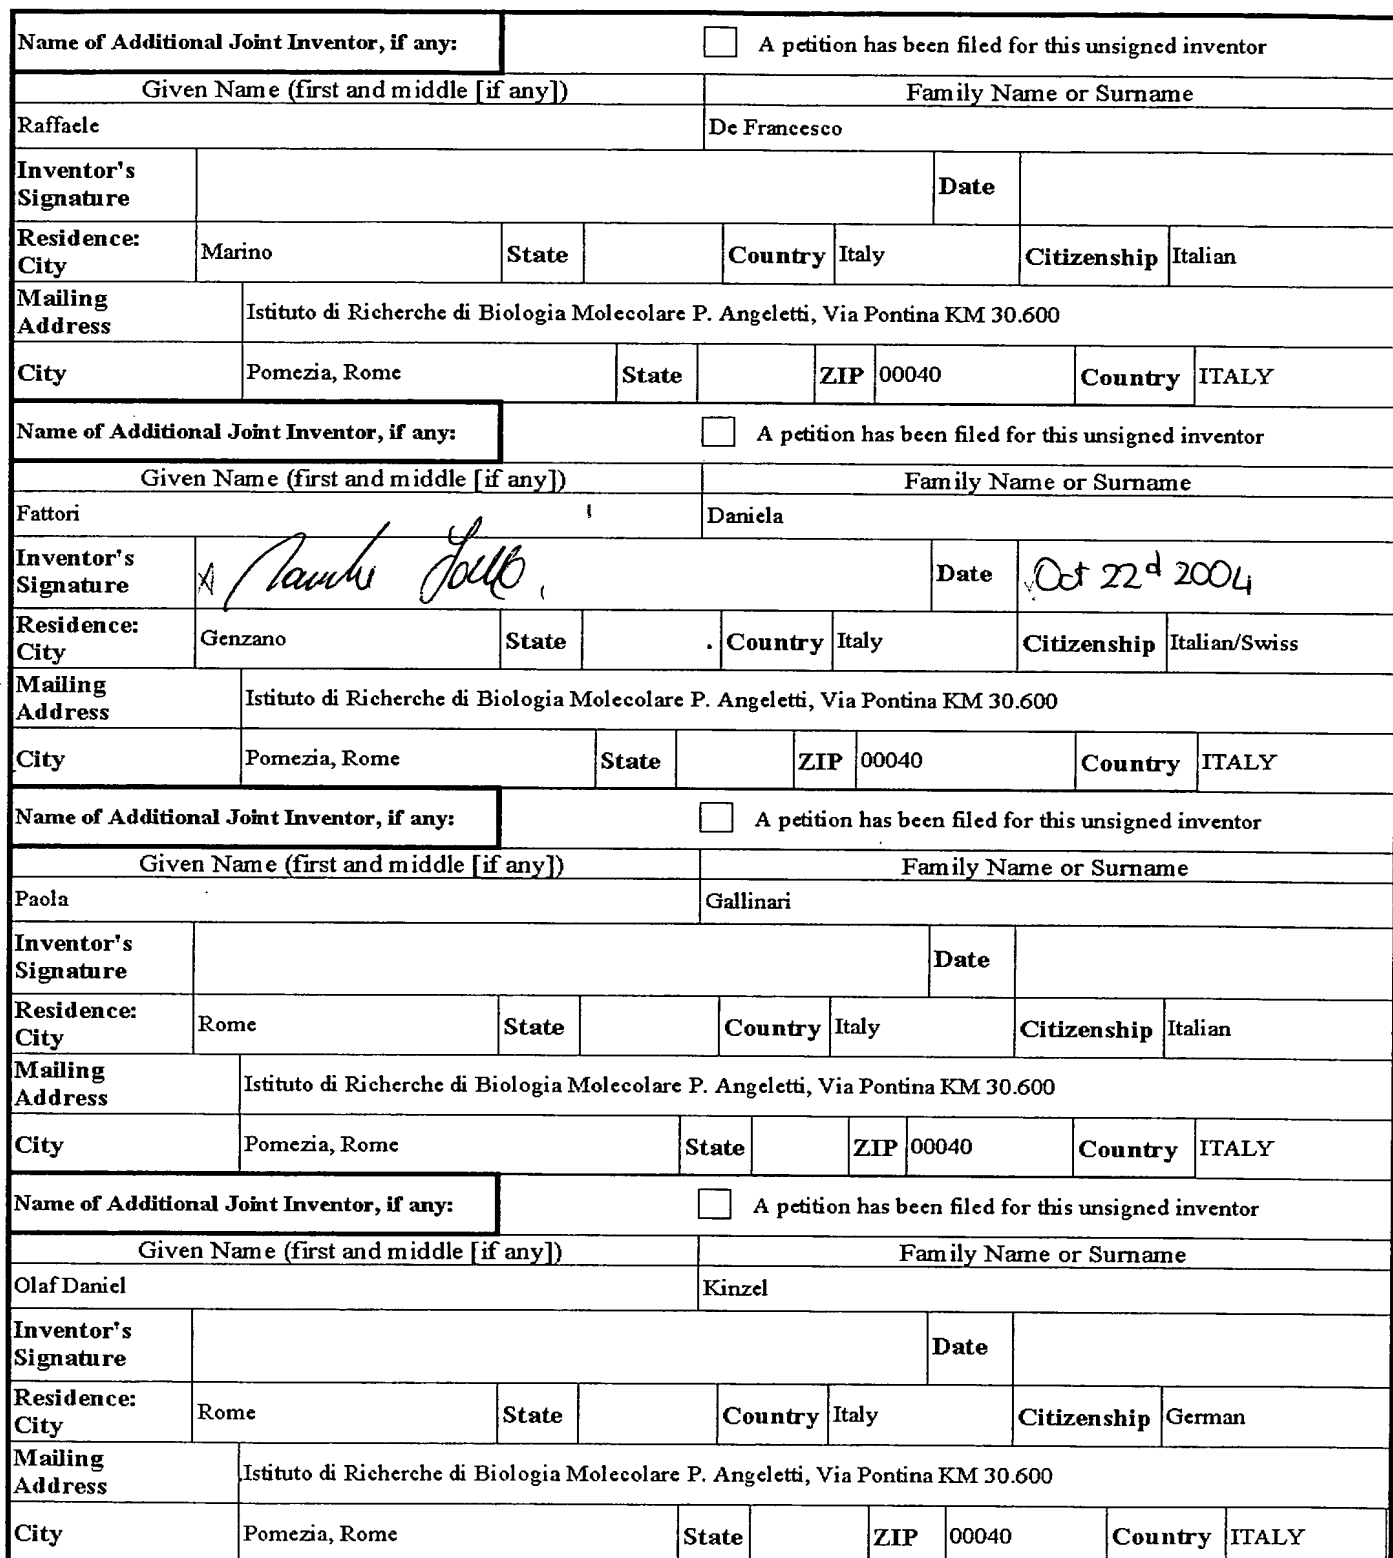 Name of Additional Joint Inventor, if any: A petition has been filed for this unsigned inventor
Given Name (first and middle [if any]) Family Name or Surname
Raffaele De Francesco
Inventor's
Signature Date
Residence:
City Marino State Country Italy Citizenship Italian
Mailing
Address Istituto di Richerche di Biologia Molecolare P. Angeletti, Via Pontina KM 30.600
City Pomezia, Rome State ZIP 00040 Country ITALY
Name of Additional Joint Inventor, if any: A petition has been filed for this unsigned inventor
Given Name (first and middle [if any]) Family Name or Surname
Fattori Daniela
Inventor's
Signature Date Oct 22d 2004
Residence:
City Genzano State Country Italy Citizenship Italian/Swiss
Mailing
Address Istituto di Richerche di Biologia Molecolare P. Angeletti, Via Pontina KM 30.600
City Pomezia, Rome State ZIP 00040 Country ITALY
Name of Additional Joint Inventor, if any: A petition has been filed for this unsigned inventor
Given Name (first and middle [if any]) Family Name or Surname
Paola Gallinari
Inventor's
Signature Date
Residence:
City Rome State Country Italy Citizenship Italian
Mailing
Address Istituto di Richerche di Biologia Molecolare P. Angeletti, Via Pontina KM 30.600
City Pomezia, Rome State ZIP 00040 Country ITALY
Name of Additional Joint Inventor, if any: A petition has been filed for this unsigned inventor
Given Name (first and middle [if any]) Family Name or Surname
Olaf Daniel Kinzel
Inventor's
Signature Date
Residence:
City Rome State Country Italy Citizenship German
Mailing
Address Istituto di Richerche di Biologia Molecolare P. Angeletti, Via Pontina KM 30.600
City Pomezia, Rome State ZIP 00040 Country ITALY